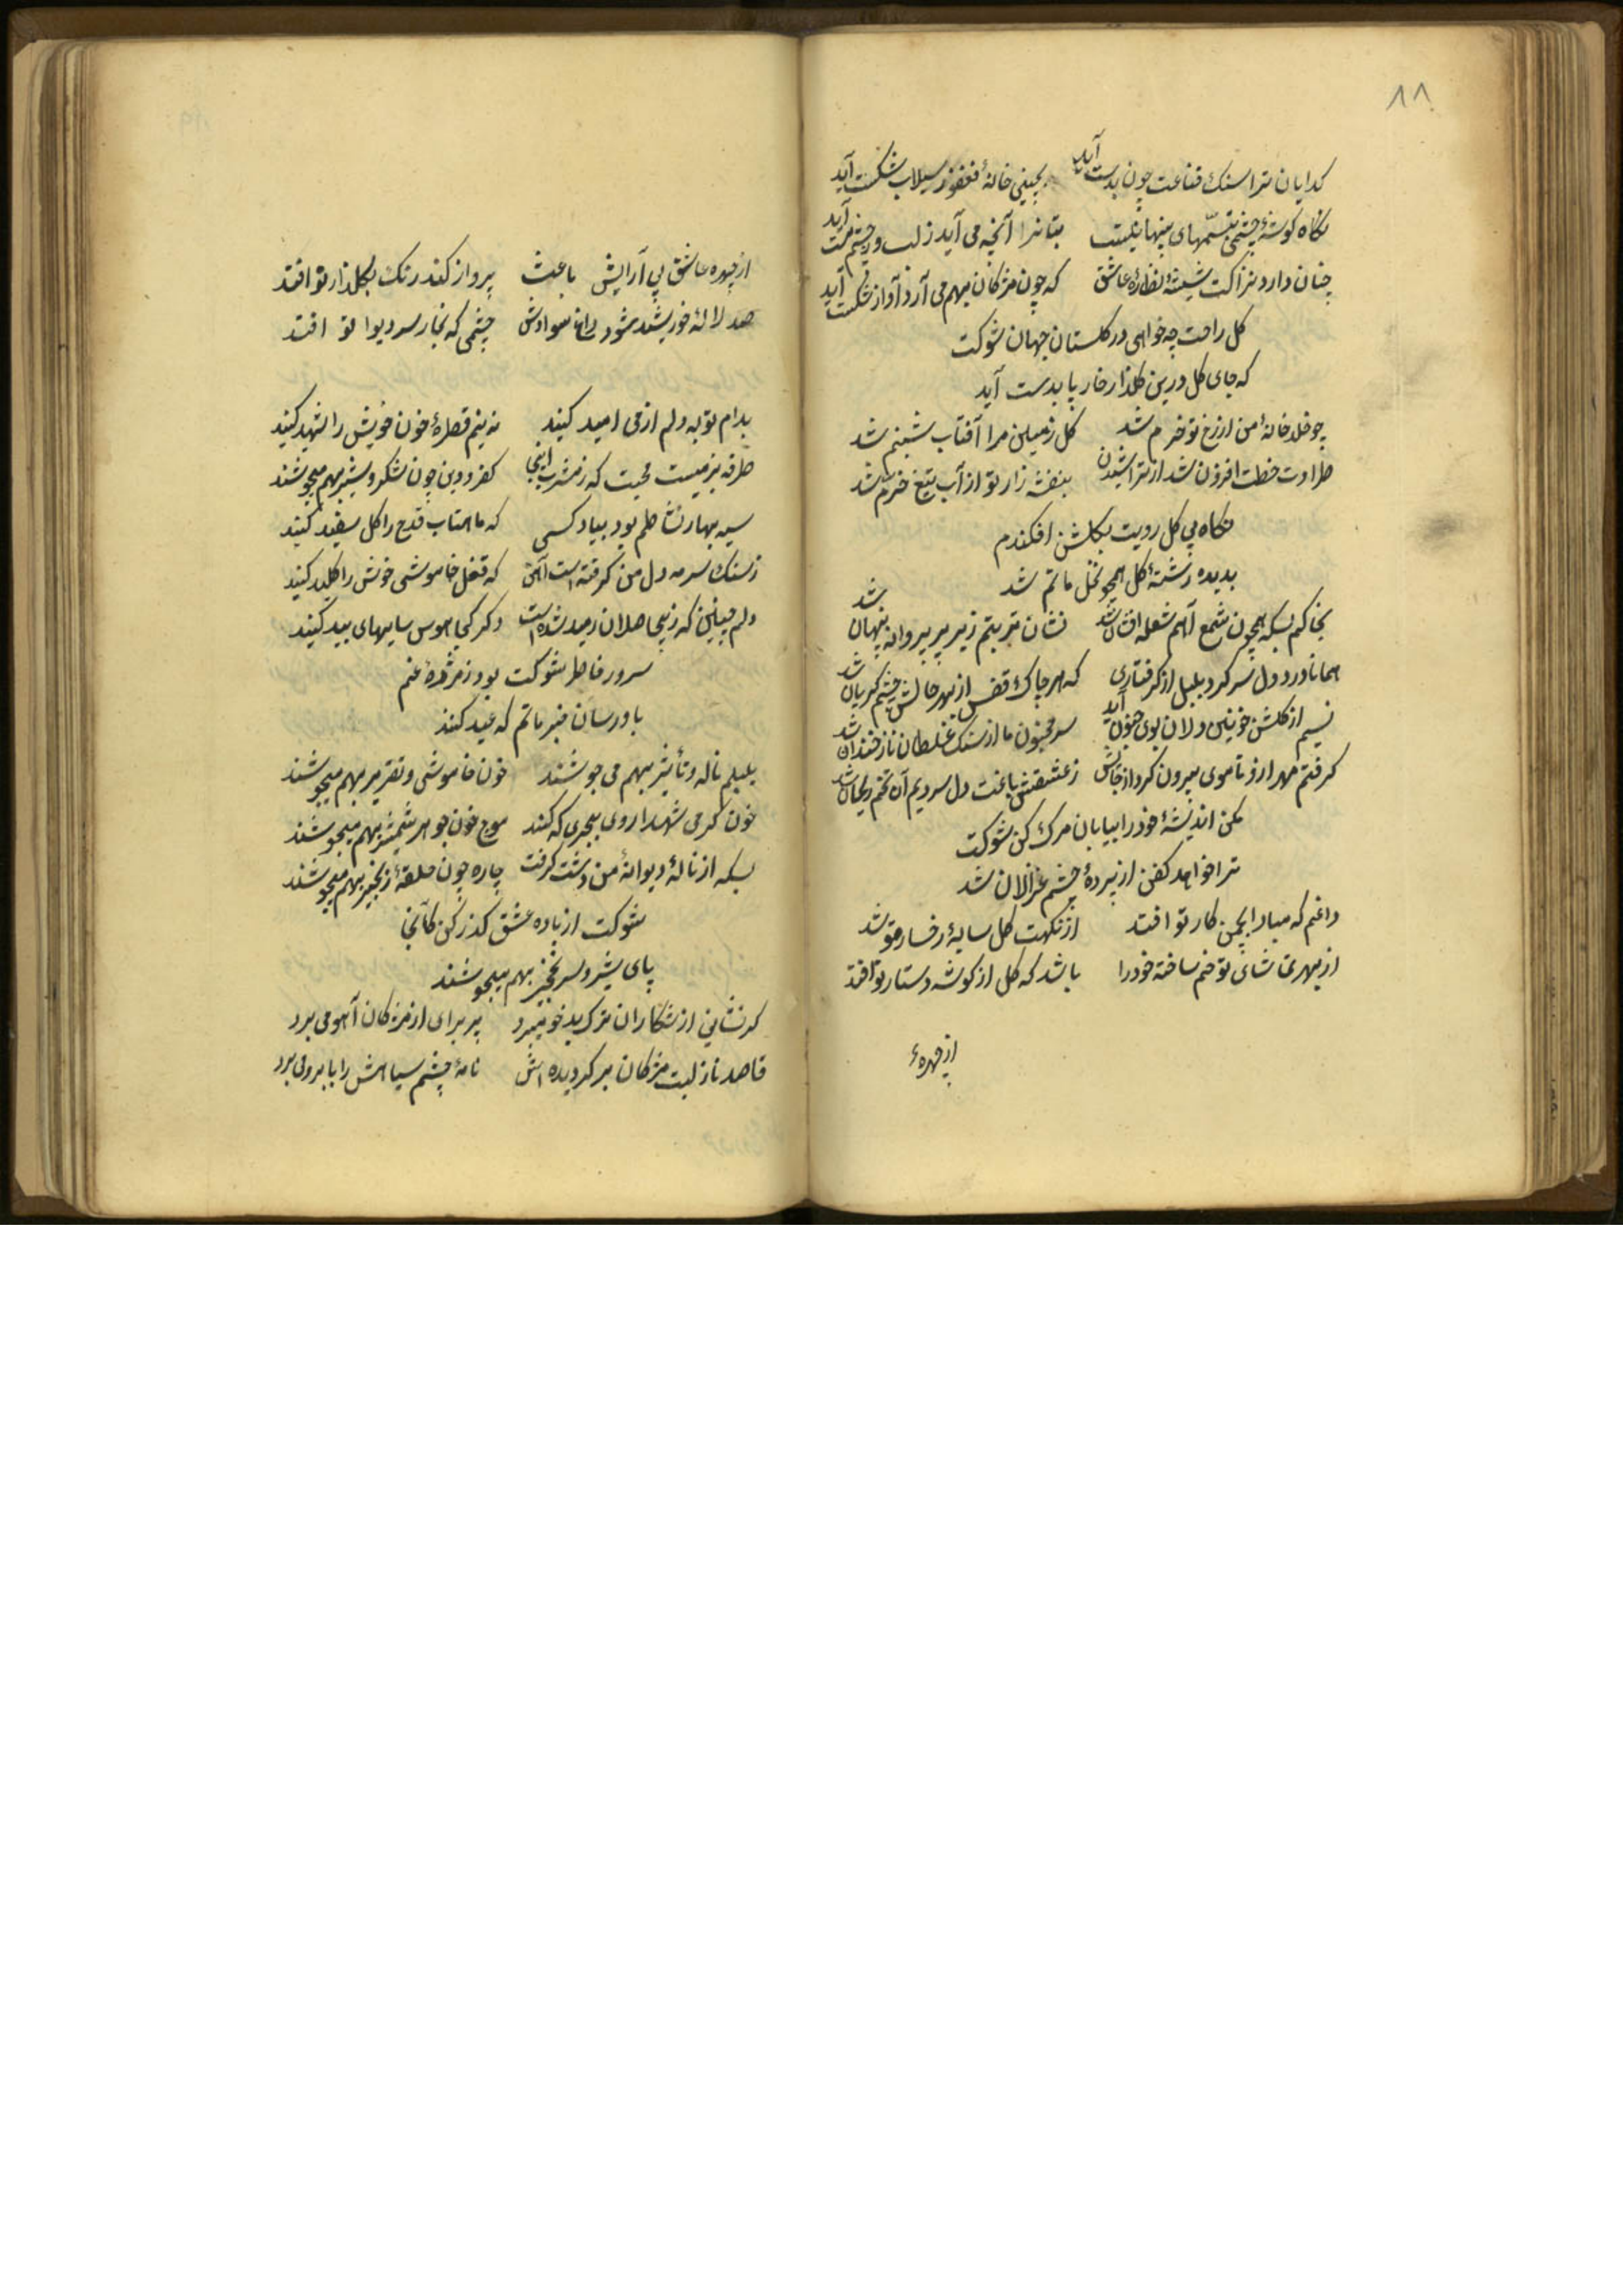 ٨٨
كدايان ترا سنك قناعت چون بدست آيد بچينى خانهٔ فغفور سيلاب شكست آيد
نكاه كوشهٔ چشمى تبسمهاى پنهانيست بتانرا آنچه مى آيد ز لب و ز چشم مست آيد
چنان دارد نزاكت شيشهٔ نظارهٔ عاشق كه چون مژكان بهم مى آرد آواز شكست آيد
كل راحت چه خواهى در كلستان جهان شوكت
كه جاى كل درين كلذار خار پا بدست آيد
چو خلد خانهٔ من از رخ تو خرم شد كل زمين مرا آفتاب شبنم شد
طراوت خطت افزون شد از تراشيدن بنفشه زار تو از آب تيغ خرم شد
نكاه بى كل رويت بكلشن افكندم
بديده رشتهٔ كل همچو نخل ماتم شد
بخاكم بسكه همچون شمع آهم شعله افشان شد نشان تربتم زير پر پروانه پنهان شد
همانا درد دل سر كرد بلبل از كرفتارى كه هر چاك قفس از بهر حالش چشم كريان شد
نسيم از كلشن خونين دلان بوى جنون آيد سر مجنون ما از سنك غلطان ناز خندان شد
كرفتم مهر ازو تا موى بيرون كرد از خالش ز عشقش باغت دل سرديم آن تخم ريحان شد
مكن انديشهٔ خود را بيابان مرك كن شوكت
ترا خواهد كفن از پردهٔ چشم غزالان شد
داغم كه مبادا بچمن كار تو افتد از نكهت كل سايهٔ رخسار تو شد
از بهر تماشاى تو خم ساخته خود را باشد كه كل از كوشه دستار تو افتد
از چهرهٔ
از چهره عاشق پى آرايش باعث پرواز كند رنك بكلذار تو افتد
صد لالهٔ خورشيد شود داغ سوادش چشمى كه بخار سر ديوار تو افتد
بدام توبه دلم از مى اميد كنيد نه نيم قطرهٔ خون خويش را شهيد كنيد
طرفه بزميست محبت كه ز مشرب اينجا كفر و دين چون شكر و شير بهم ميجوشند
سيه بهار نشاطم بود بياد كسى كه ماهتاب قدح را كل سفيد كنيد
ز سنك سرمه دل من كرفته است آهن كه قفل خاموشى خونش را كليد كنيد
دلم چنين كه ز بيحاصلان رميد شده است دكر كجا هوس سايهاى بيد كنيد
سرور خاطر شوكت بود ز مژدهٔ غم
باو رسان خبر ماتم كه عيد كند
بلبلم ناله و تأثير بهم مى جوشند خون خاموشى و تقرير بهم ميجوشند
خون كرمى شهدا روى ببحرى كه كنند موج خون جوهر شمشير بهم ميجوشند
بسكه از نالهٔ ديوانهٔ من دشت كرفت چاره چون حلقهٔ زنجير بهم ميجوشند
شوكت از باده عشق كذر كن كانجا
پاى شير و سر نخجير بهم ميجوشند
كر نشانى از شكاران ترك بدخو ميبرد پر براى از مژكان آهو مى برد
قاصد نازليت مژكان بر كرديده اش نامهٔ چشم سياهش را بابرو مى برد